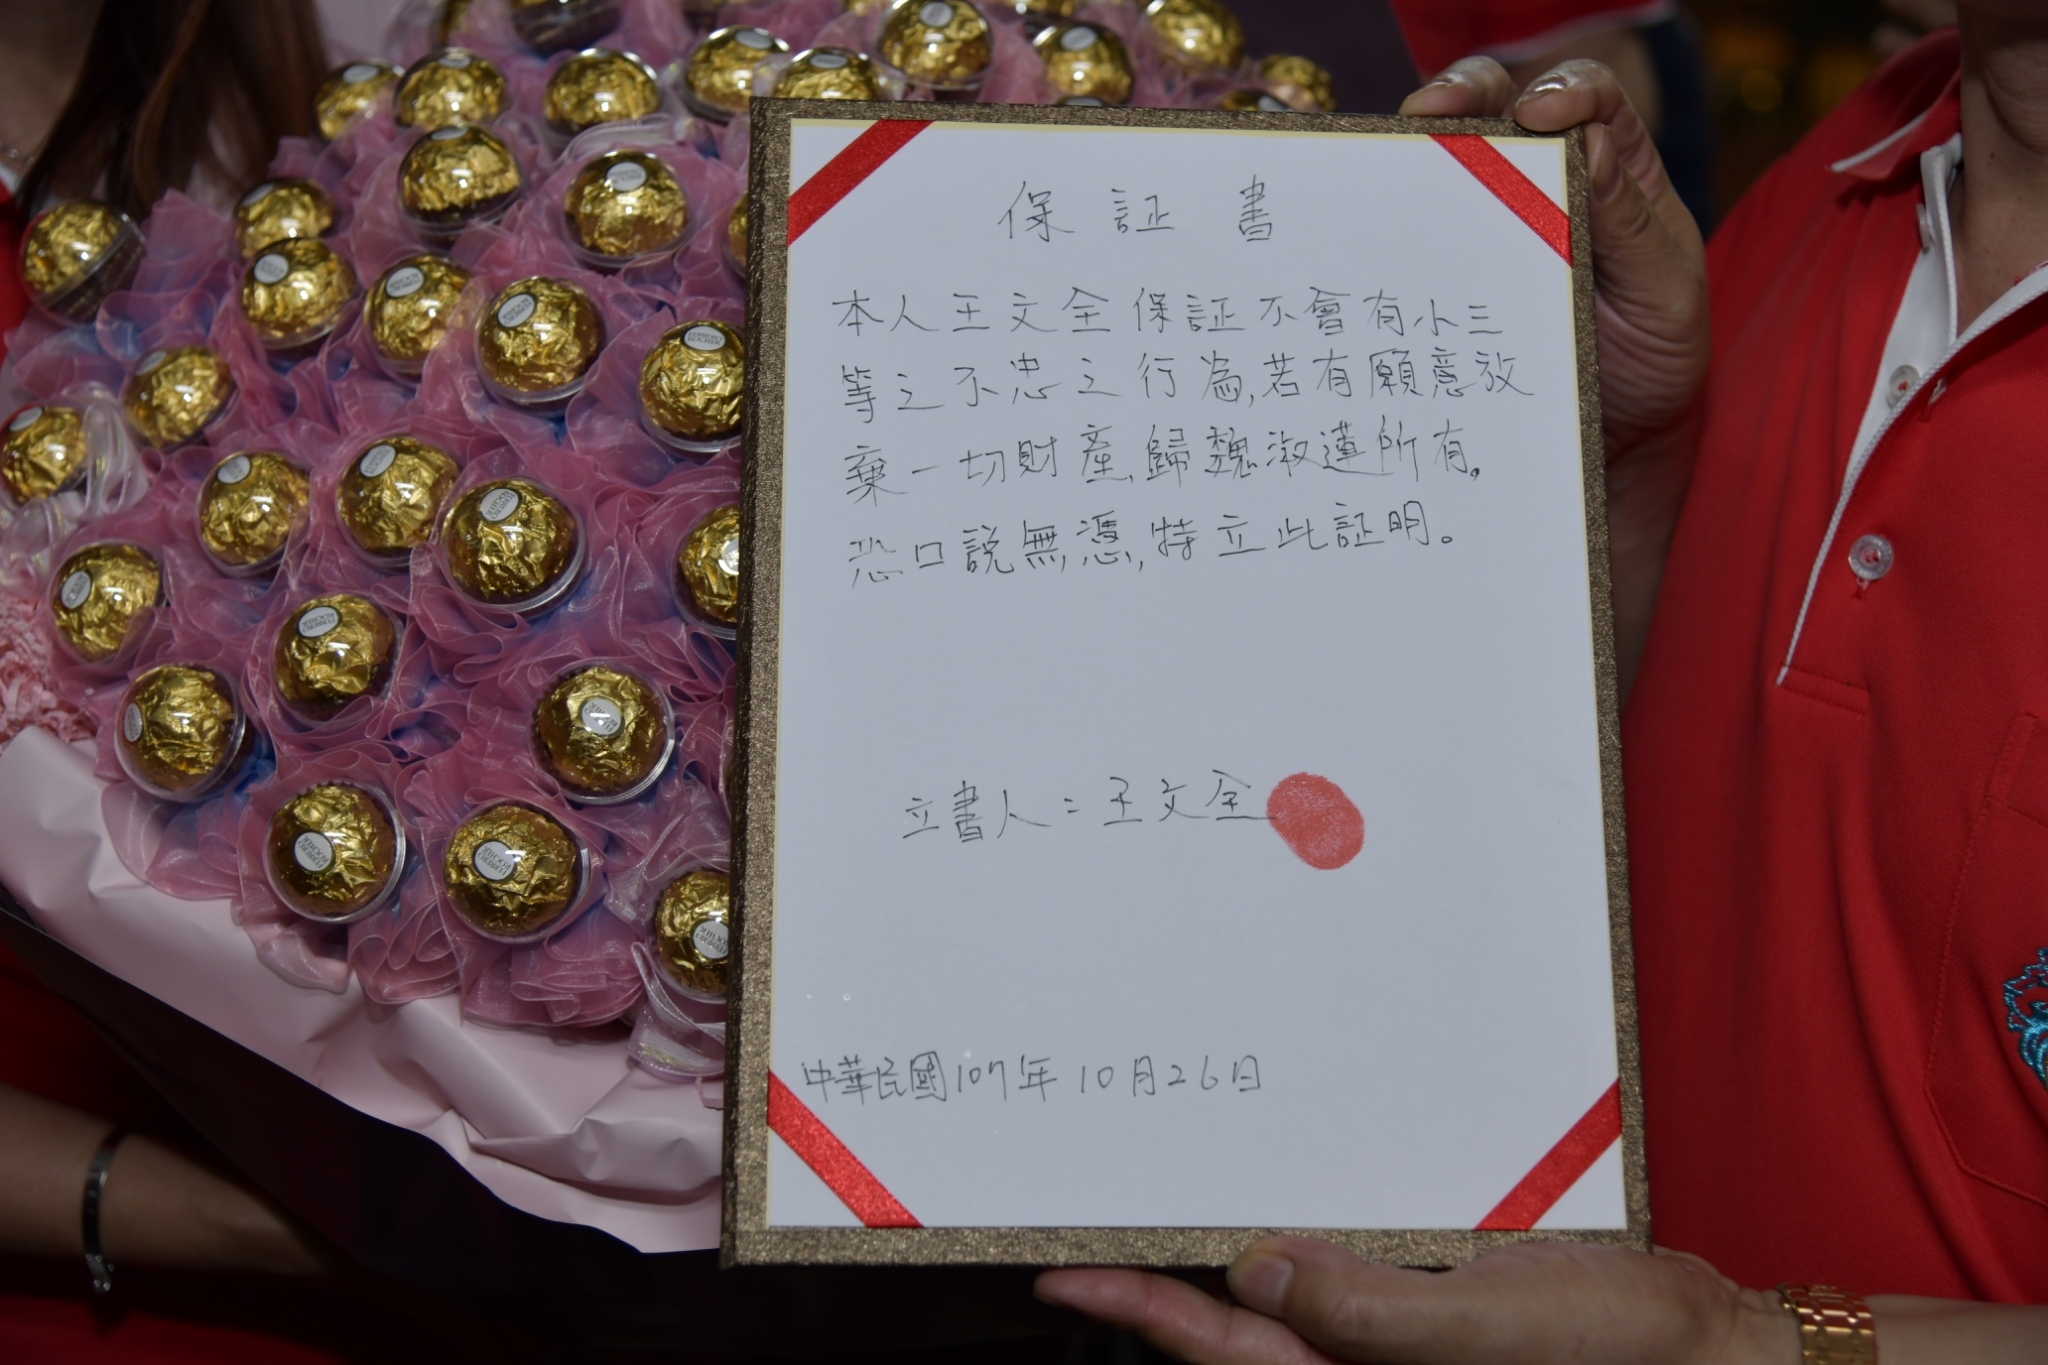 保証書
本人王文全保証不會有小三
等之不忠之行為,若有願意放
棄一切財產,歸魏淑蓮所有。
恐口說無憑,特立此証明。
立書人:王文全
中華民國107年10月26日
FERRERO
ROCHER